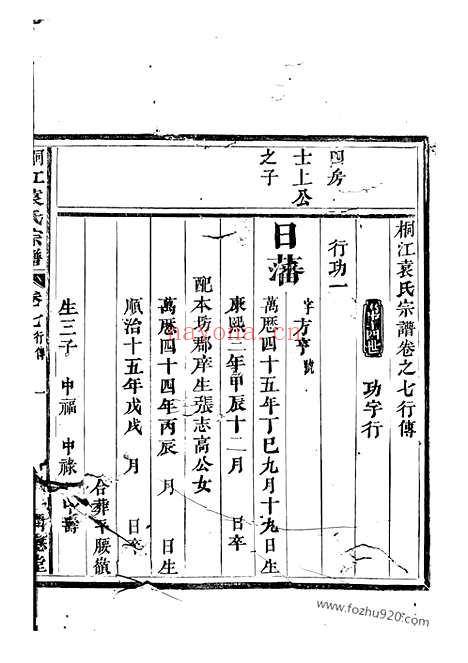 桐江袁氏宗譜卷之七行傳
功字行
行功一
四房
士上公
之子
日藩
字方亨 號
萬曆四十五年丁巳九月十九日生
康熙三年甲辰十二月 日卒
配本房郡庠生張志高公女
萬曆四十四年丙辰 月 日生
順治十五年戊戌 月 日卒
合葬平腰嶺
生三子 中福 中祿 中壽
桐江袁氏宗譜 卷七 行傳 一
naxona.com
www.fozhu920.com